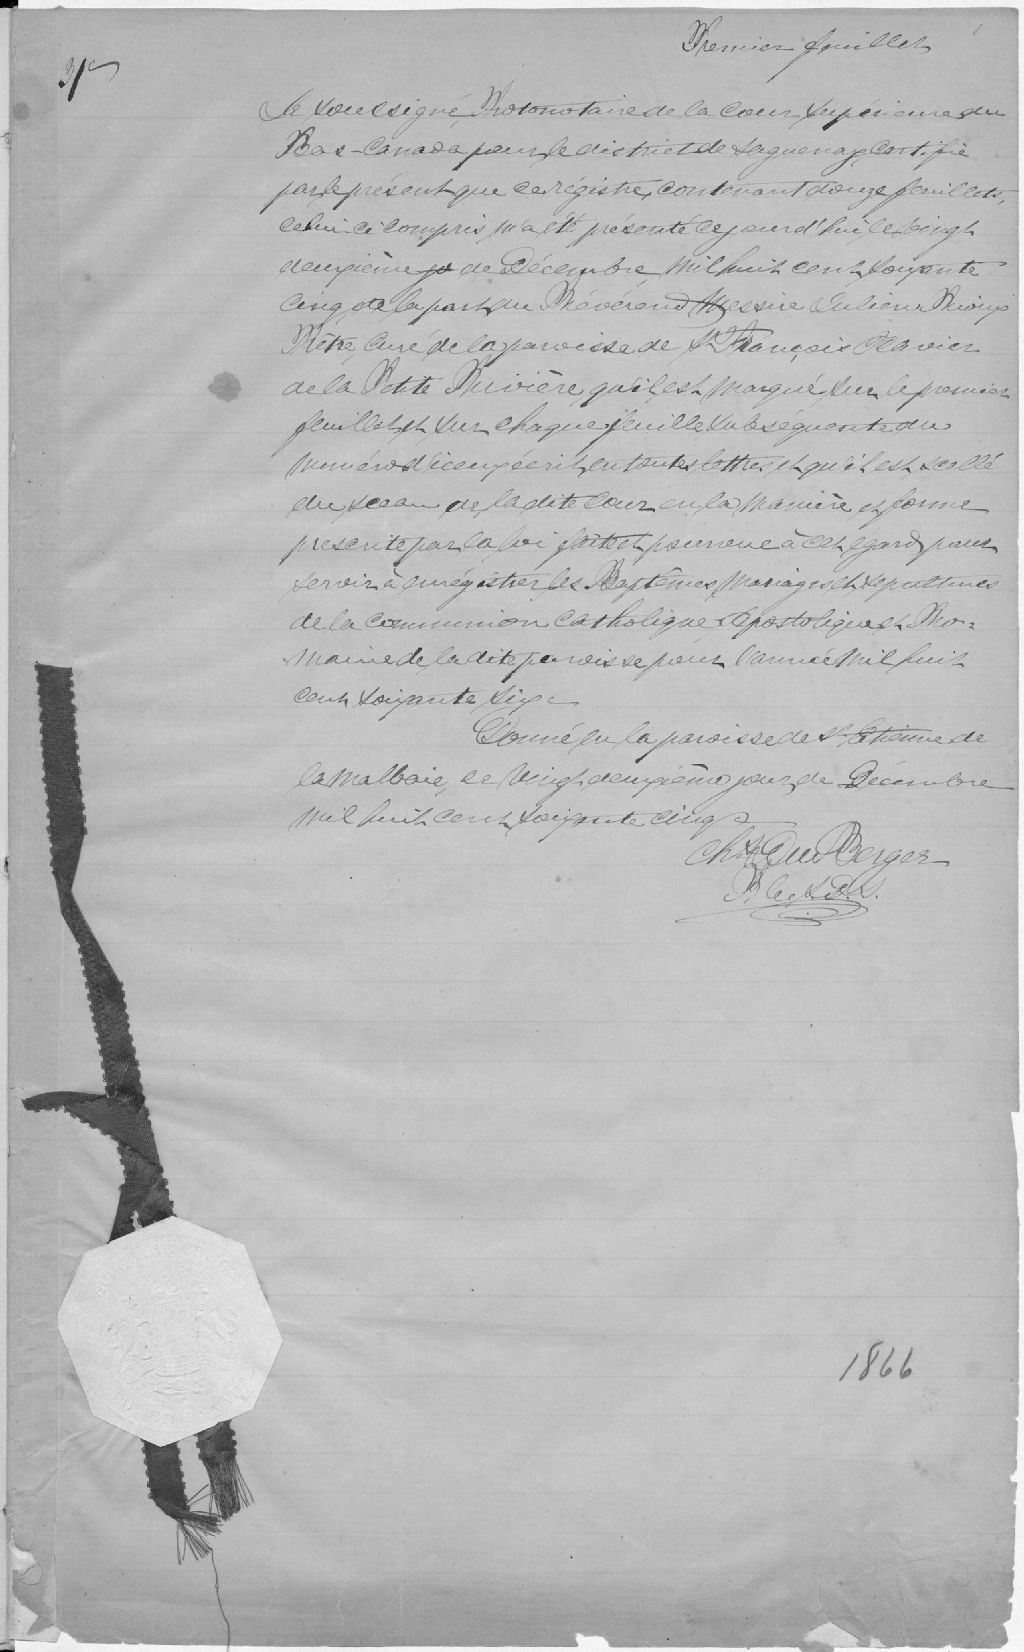 Premier feuillet
Je soussigné, Protonotaire de la Cour Supérieure du
Bas-Canada pour le district de Saguenay, certifie
par le présent que ce régistre, contenant douze feuillets,
celui-ci compris, m'a été présenté ce jourd'hui le vingt
deuxième jo de Décembre, mil huit cent soixante
cinq de la part du Révérend Messire Julien Rioux
Prêtre, Curé de la paroisse de St François Xavier
de la Petite Rivière, qu'il est marqué sur le premier
feuillet et sur chaque feuille subséquente du
numéro d'iceux écrit en toutes lettres et qu'il est scellé
du sceau de la dite Cour en la manière et forme
prescrite par la loi faite et pourvue à cet égard, pour
servir à enrégistrer les Baptêmes, Mariages et Sépultures
de la Communion Catholique Apostolique et Ro=
maine de la dite paroisse pour l'année mil huit
cent soixante six.
Donné en la paroisse de St Etienne de
la Malbaie, ce vingt deuxième jour de Décembre
mil huit cent soixante cinq.
Chs Du Berger
P. C. S. D. S.
1866